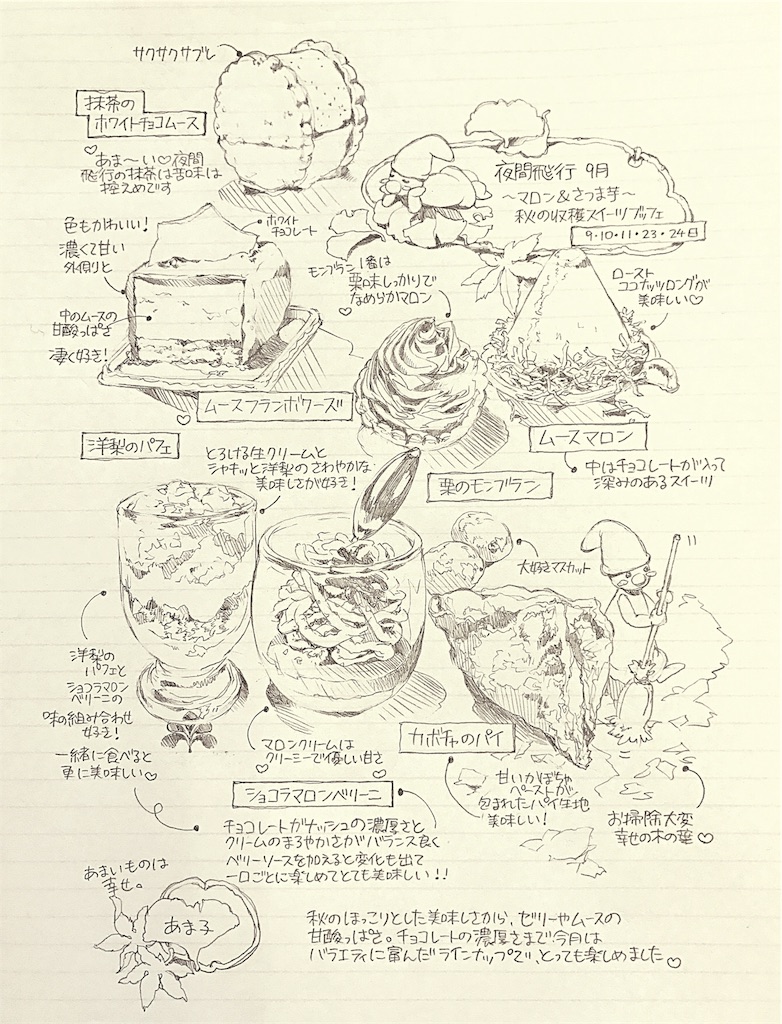 サクサクサブレ
抹茶の
ホワイトチョコムース
♡あま〜い♡夜間
飛行の抹茶は苦味は
控えめです
夜間飛行 9月
〜マロン&さつま芋〜
秋の収穫スイーツブッフェ
9・10・11・23・24日
色もかわいい!
濃くて甘い
外側りと
中のムースの
甘酸っぱさ
凄く好き!
ホワイト
チョコレート
ムースフランボワーズ
モンブラン1番は
栗味しっかりで
なめらかマロン
栗のモンブラン
ロースト
ココナッツロングが
美味しい♡
ムースマロン
中はチョコレートが入って
深みのあるスイーツ
洋梨のパフェ
とろける生クリームと
シャキッと洋梨のさわやかな
美味しさが好き!
洋梨の
パフェと
ショコラマロン
ベリーニの
味の組み合わせ
好き!
一緒に食べると
更に美味しい♡
マロンクリームは
クリーミーで優しい甘さ
ショコラマロンベリーニ
チョコレートガナッシュの濃厚さと
クリームのまろやかさがバランス良く
ベリーソースを加えると変化も出て
一口ごとに楽しめてとても美味しい!!
大好きマスカット
カボチャのパイ
甘いかぼちゃ
ペーストが
包まれたパイ生地
美味しい!
お掃除大変
幸せの木の葉♡
あまいものは
幸せ。
あま子
秋のほっこりとした美味しさから、ゼリーやムースの
甘酸っぱさ。チョコレートの濃厚さまで今月は
バラエティに富んだラインナップで、とっても楽しめました♡